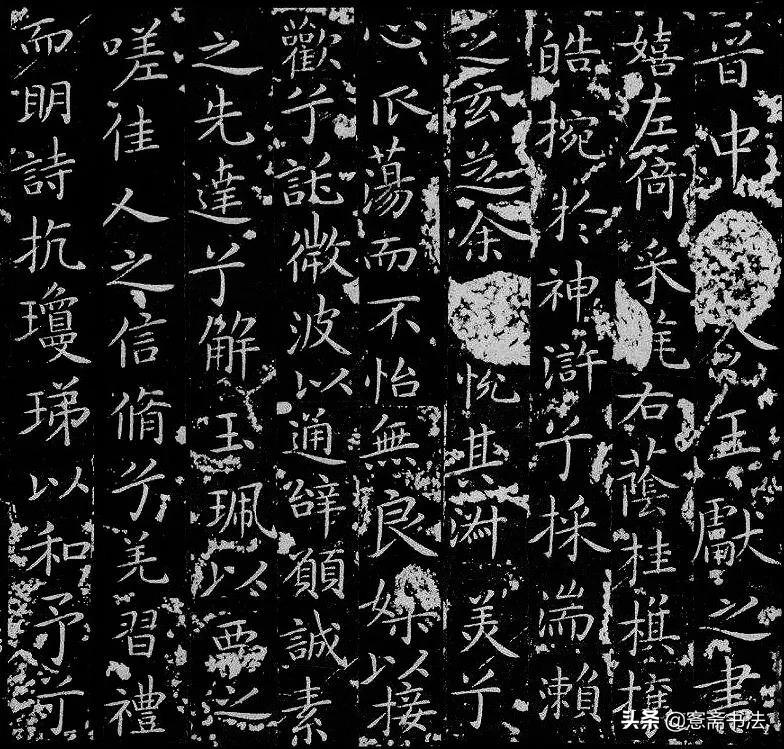 晉中王獻之書
嬉左倚采旄右蔭桂旗攘
皓捥於神滸兮採湍瀬
之玄芝余悅其淑美兮
心蕩而不怡無良媒以接
歡兮託微波以通辭願誠素
之先達兮解玉珮以要之
嗟佳人之信脩兮羌習禮
而明詩抗瓊珶以和予兮
头条 @愙斋书法